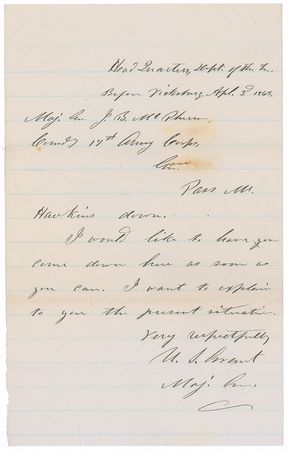 Head Quarters, Dept. of the T.
Before Vicksburg, Apl. 3d 1863.
Maj. Gn. J. B. McPherson,
Comdg 17th Army Corps,
Gn.
Pass Mr.
Hawkins down.
I would like to have you
come down here as soon as
you can. I want to explain
to you the present situation.
Very respectfully
U. S. Grant
Maj. Gn.